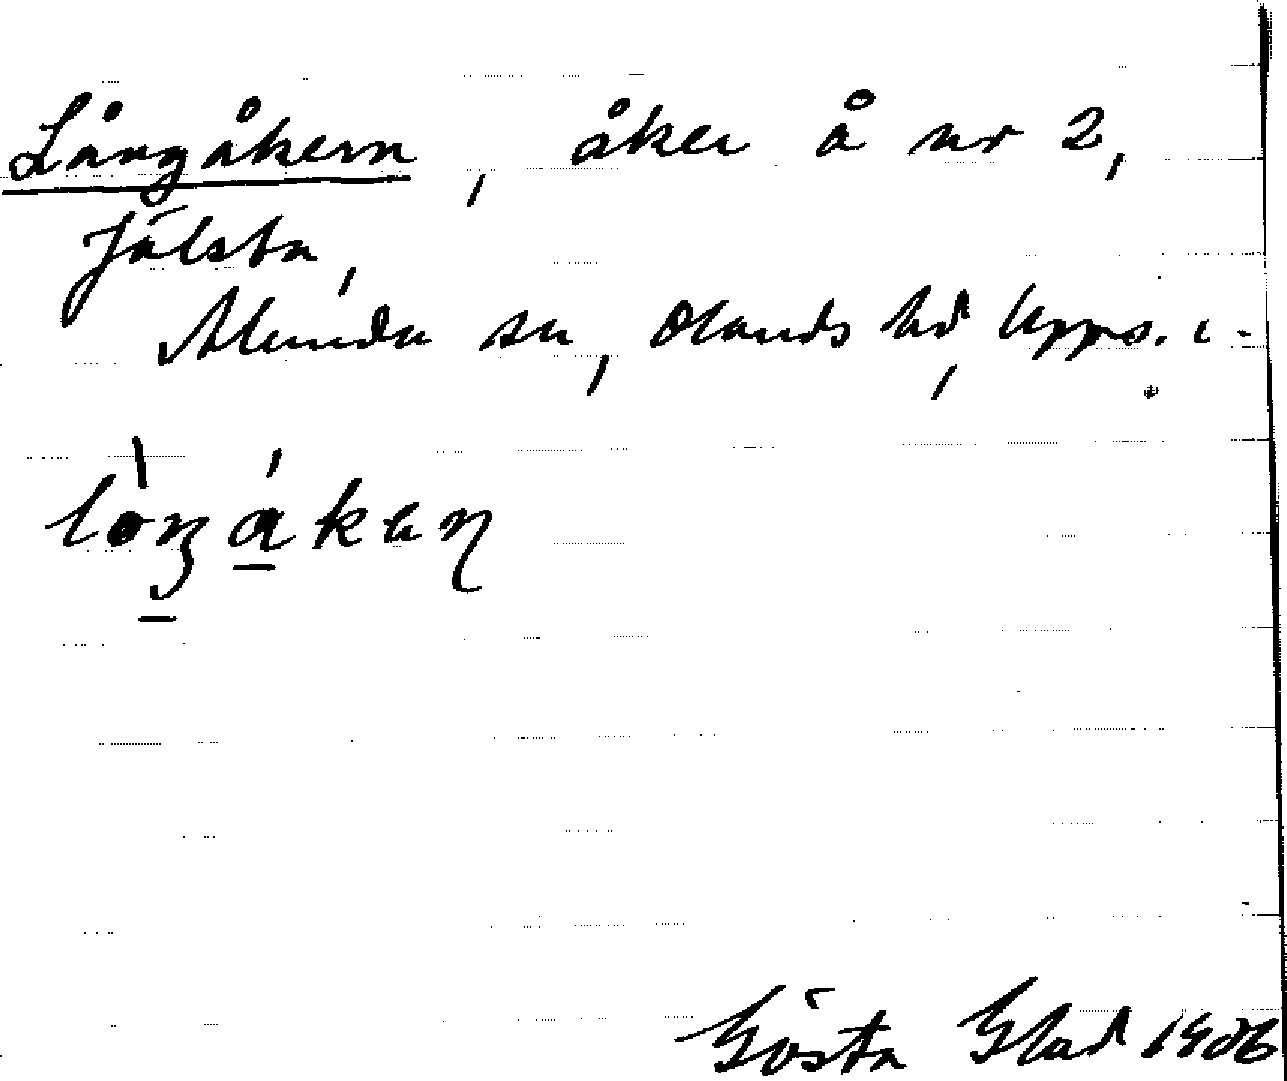 Långåkern, åker å nr 2,
Jälsta,
Alunda sn, Olands hd, Upps. l.
lòŋákaɳ
Gösta Glad 1936